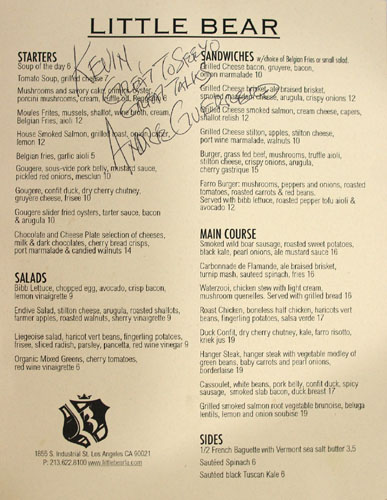 LITTLE BEAR
STARTERS
Soup of the day 6
Tomato Soup, grilled cheese 7
Mushrooms and savory cake, oyster,
porcini mushrooms, cream, truffle oil,
Moules Frites, mussels, shallot, wine broth, cream,
Belgian Fries, aioli 12
House Smoked Salmon, grilled toast, onion,
lemon 12
Belgian fries, garlic aioli 5
Gougere, sous-vide pork belly, mustard sauce,
pickled red onions, mesclun 10
Gougere, confit duck, dry cherry chutney,
gruyère cheese, frisee 10
Gougere slider fried oysters, tarter sauce, bacon
& arugula 10
Chocolate and Cheese Plate selection of cheeses,
milk & dark chocolates, cherry bread crisps,
port marmalade & candied walnuts 14
SALADS
Bibb Lettuce, chopped egg, avocado, crisp bacon,
lemon vinaigrette 9
Endive Salad, stilton cheese, arugula, roasted shallots,
farmer apples, roasted walnuts, sherry vinaigrette 9
Liegeoise salad, haricot vert beans, fingerling potatoes,
frisee, sliced radish, parsley, pancetta, red wine vinegar 9
Organic Mixed Greens, cherry tomatoes,
red wine vinaigrette 6
1855 S. Industrial St. Los Angeles CA 90021
P: 213.622.8100 www.littlebearla.com
KEVIN,
GREAT TO SEE YO
GREAT TALKS
ANDRE GUERRERO
SANDWICHES w/choice of Belgian Fries or small salad.
Grilled Cheese bacon, gruyere, bacon,
onion marmalade 10
Grilled Cheese brisket, ale braised brisket,
smoked cheese, arugula, crispy onions 12
Grilled Cheese smoked salmon, cream cheese, capers,
shallot relish 12
Grilled Cheese stilton, apples, stilton cheese,
port wine marmalade, walnuts 10
Burger, grass fed beef, mushrooms, truffle aioli,
stilton cheese, crispy onions, arugula,
cherry gastrique 15
Farm Burger: mushrooms, peppers and onions, roasted
tomatoes, roasted carrots & red beans.
Served with bibb lettuce, roasted pepper tofu aioli &
avocado 12
MAIN COURSE
Smoked wild boar sausage, roasted sweet potatoes,
black kale, pearl onions, ale mustard sauce 16
Carbonnade de Flamande, ale braised brisket,
turnip mash, sautéed spinach, frites 16
Waterzooi, chicken stew with light cream,
mushroom quenelles. Served with grilled bread 16
Roast Chicken, boneless half chicken, haricots vert
beans, fingerling potatoes, salsa verde 17
Duck Confit, dry cherry chutney, kale, farro risotto,
kriek jus 19
Hanger Steak, hanger steak with vegetable medley of
green beans, baby carrots and pearl onions,
borderlaise 19
Cassoulet, white beans, pork belly, confit duck, spicy
sausage, smoked slab bacon, duck breast 17
Grilled smoked salmon root vegetable brunoise, beluga
lentils, lemon and onion soubise 19
SIDES
1/2 French Baguette with Vermont sea salt butter 3.5
Sautéed Spinach 6
Sautéed black Tuscan Kale 6